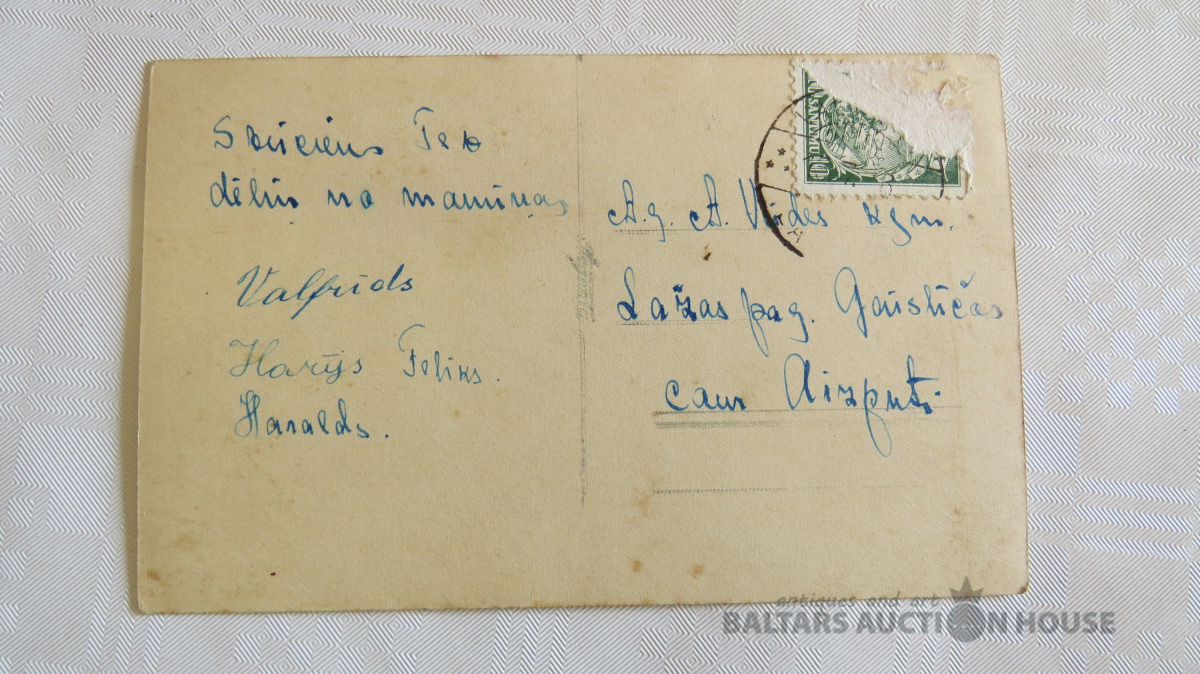 Skūciens Tev
dēliņ no mamiņas
Valfrīds
Harijs Feliks.
Haralds.
SANTIMU 10
A.g. A. kgm.
Lažas pag. Gaističas
caur Aizputi
antiques and art
BALTARS AUCTION HOUSE